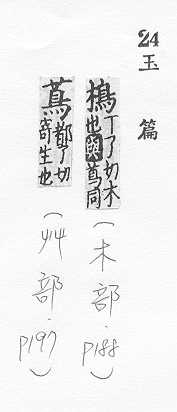 24 玉篇
樢丁了切木也與蔦同（木部．P188）
蔦都了切寄生也（艸部．P197）